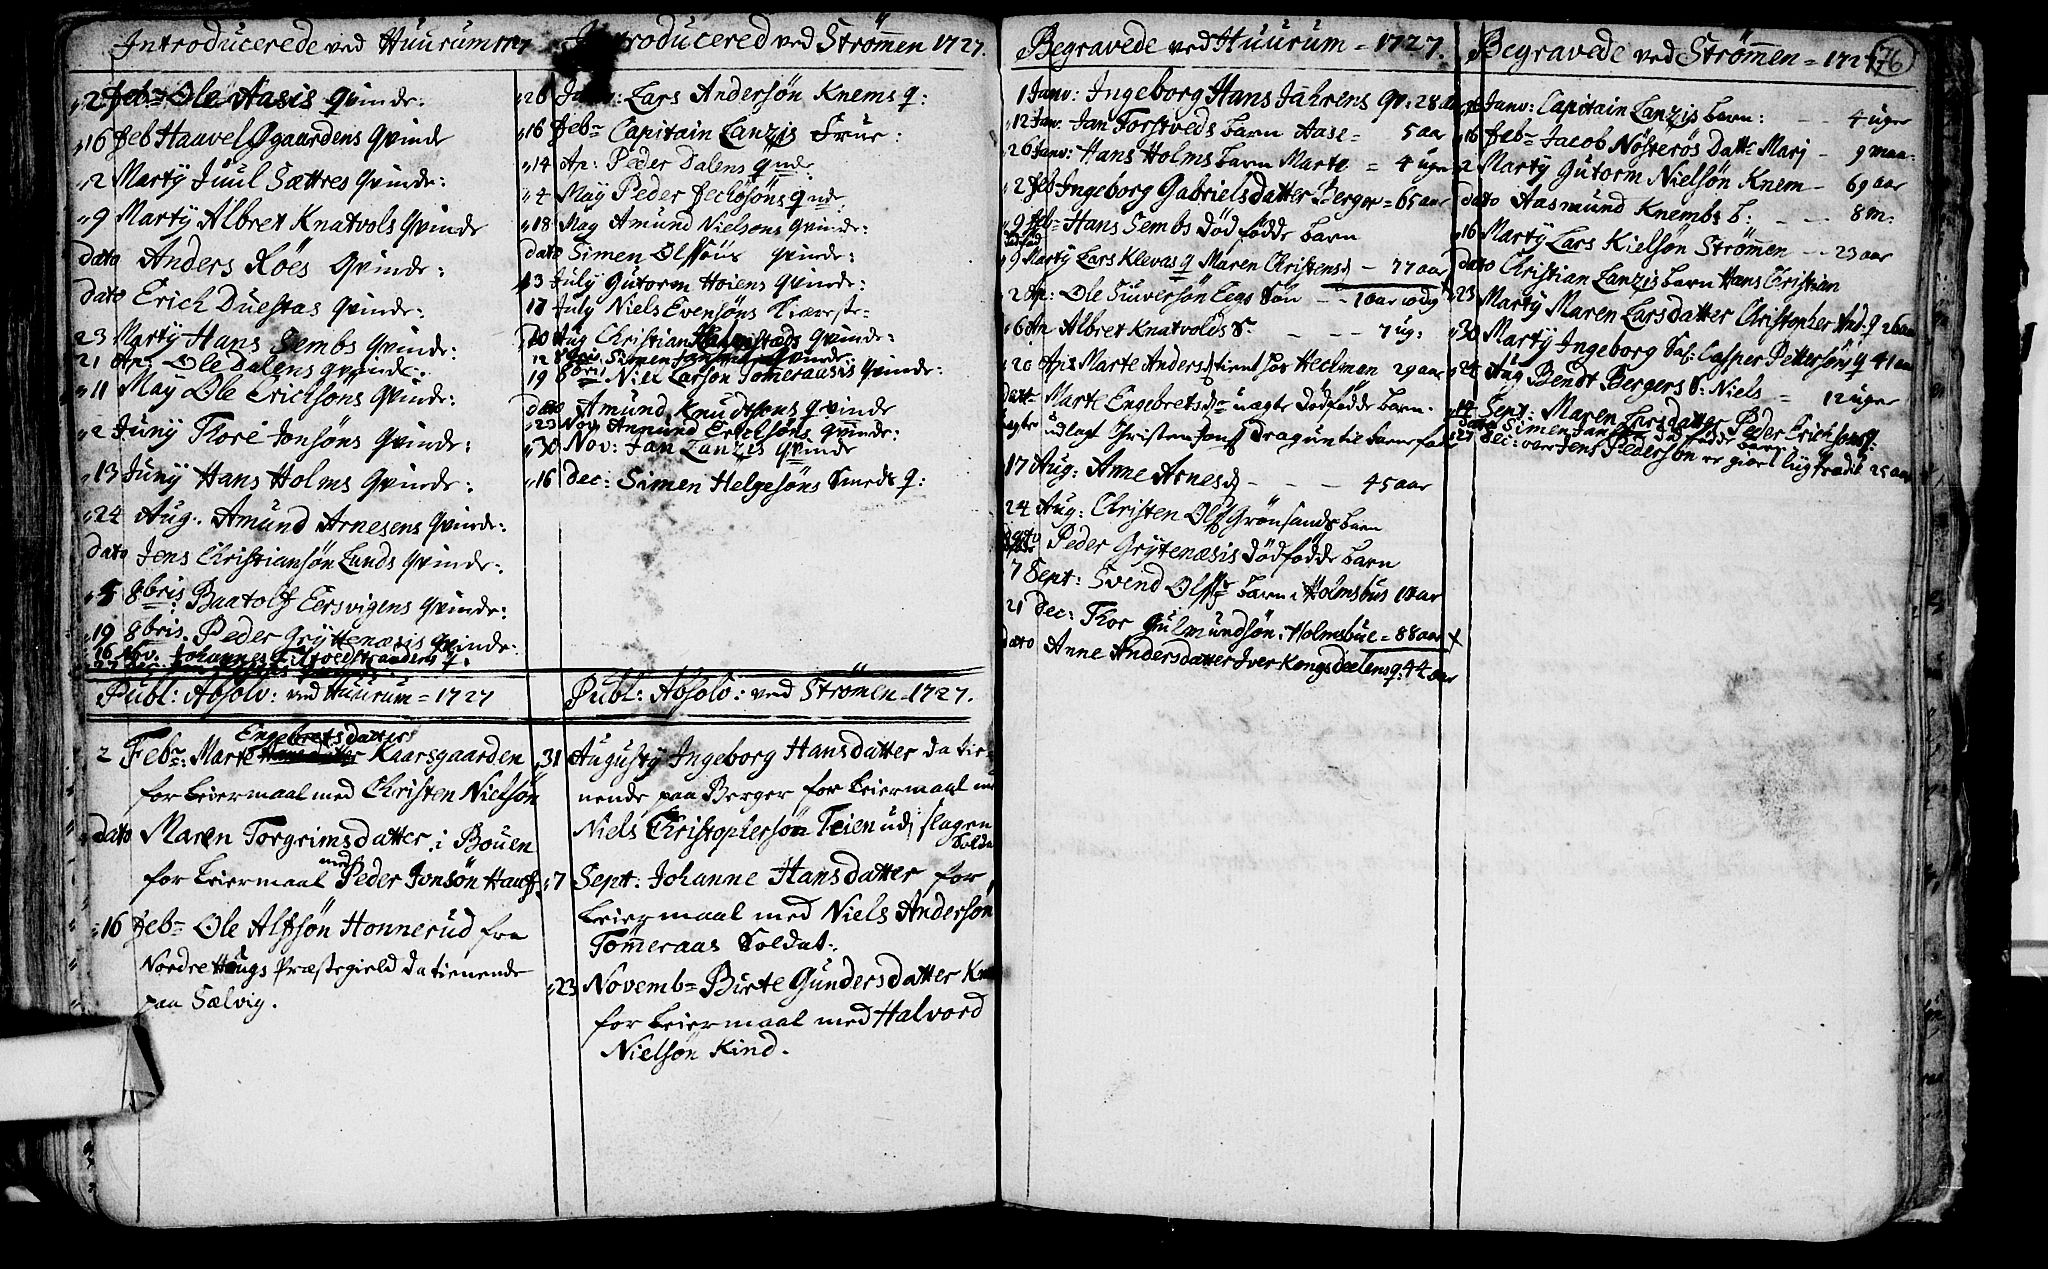 Introducerede ved Huurum 1727
2 Feb: Ole Aasis Qvinde:
16 Feb Haavel Øgaardens Qvinde
2 Martij Juul Sættres Qvinde:
9 Martij Albret Knatvols Qvinde
dato Anders Röes Qvinde:
dato Erich Duestas Qvinde:
23 Martij Hans Sembs Qvinde:
21 Ap: Ole Dalens Qvinde:
11 May Ole Erichsöns Qvinde:
2 Junij Thore Jonsöns Qvinde:
13 Junij Hans Holms Qvinde:
24 Aug: Amund Arnesens Qvinde:
dato Jens Christiansön Lunds Qvinde:
5 8bris Baatolf Eersvigens Qvinde:
19 8bris Peder Gryttenæsis Qvinde:
16 Nov. Johannes
Introducered ved Strömen 1727.
26 Lars Andersön Knems q:
16 Feb Capitain Lanzis Frue:
14 Ap: Peder Dalens qnde.
4 May Peder qnde.
18 May Amund Nielsons Qvinde:
dato Simen Olssöns Qvinde:
13 July Gutorm Hoiens Qvinde:
July Niels Evensöns Kiæreste
20 Aug Christian Qvinde:
12 Simen Qvinde
19 8bris Niel Larsön Tömeraasis Qvinde:
dato Amund Knudtsons Qvinde
23 Nov Amund Erichsöns Qvinde:
30 Nov: Jan Lanzis Qvinde
16 Dec: Simen Helgesöns Smeds q:
Publ: Absolv: ved Huurum = 1727
Engebretsdatter
2 Febr: Marte Kaarsgaarden
for Leiermaal med Christen Nielsön
dato Maren Torgrimsdatter i Bouen
for Leiermaal med Peder Jonsön
16 Feb Ole Alfsön Honnerud fra
Nordre Haugs Præstegield da tienende
paa Sælvig.
Publ: Absolv: ved Strömen = 1727.
31 Augustij Ingeborg Hansdatter da tie
nende paa Berger for Leiermaal
Niels Christophersön Teien udj Slagen
Solda
7 Sept: Johanne Hansdatter for
Leiermaal med Niels Andersön
Tömeraas Soldat.
23 Novemb Birte Gundersdatter
for Leiermaal med Halvord
Nielsön Kind.
Begravede ved Huurum = 1727.
1 Janv: Ingeborg Hans Jahrens qv: 28
12 Jan: Jan Forstveds barn Aase = 5 aar
26 Janv: Hans Holms barn Marte = 4 uger
2 Feb Ingeborg Gabrielsdatter Berger = 65 aar
9 Feb Hans Sembs Död födde barn
9 Martij Lars Klevas q Maren Christensd - 77 aar
2 Ap: Ole Siuversön Eegs Sön - 1 aar 10 dg
6 Ap Albret Knatvolds S. - 7 ug:
20 Marte Andersd tient hos Heelman 29 aar
dato Marte Engebretsd uægte Dödfödde barn.
udlagt Christen Dragun til barnefader
17 Aug: Anne Arnesd - 45 aar
24 Aug: Christen Grönsands barn
dato Peder Grytenæsis Dödfödde barn
7 Sept: Svend barn i Holmsbus 10 aar
21 Dec: Thor Gulmundsön i Holmsbue = 88 aar
dato Anne Andersdatter Iver Kongsdeelens q: 44 aar
Begravede ved Strömen = 172
76
Janv: Capitain Lanzis barn: 4 uger
16 Feb Jacob Nösterös Datter Marj - 9 maa:
2 Martij Gutorm Nielsön Knem - 69 aar
dato Aasmund Knembs b: - 8 m.
16 Martij Lars Kielsön Strömmen - 23 aar
dato Christian Lanzis barn Hans Christian
23 Martij Maren Larsdatter Christopher And: q 26
30 Martij Ingeborg Sal: Casper Pettersöns q 41 aar
24 Aug Bendt Bergers S: Niels = 12 uger
14 Sept: Maren Larsdatter Peder Erichsöns q:
dato Simen Jan
27 Dec: Jens Pedersön er giort liigprædik 25 aar